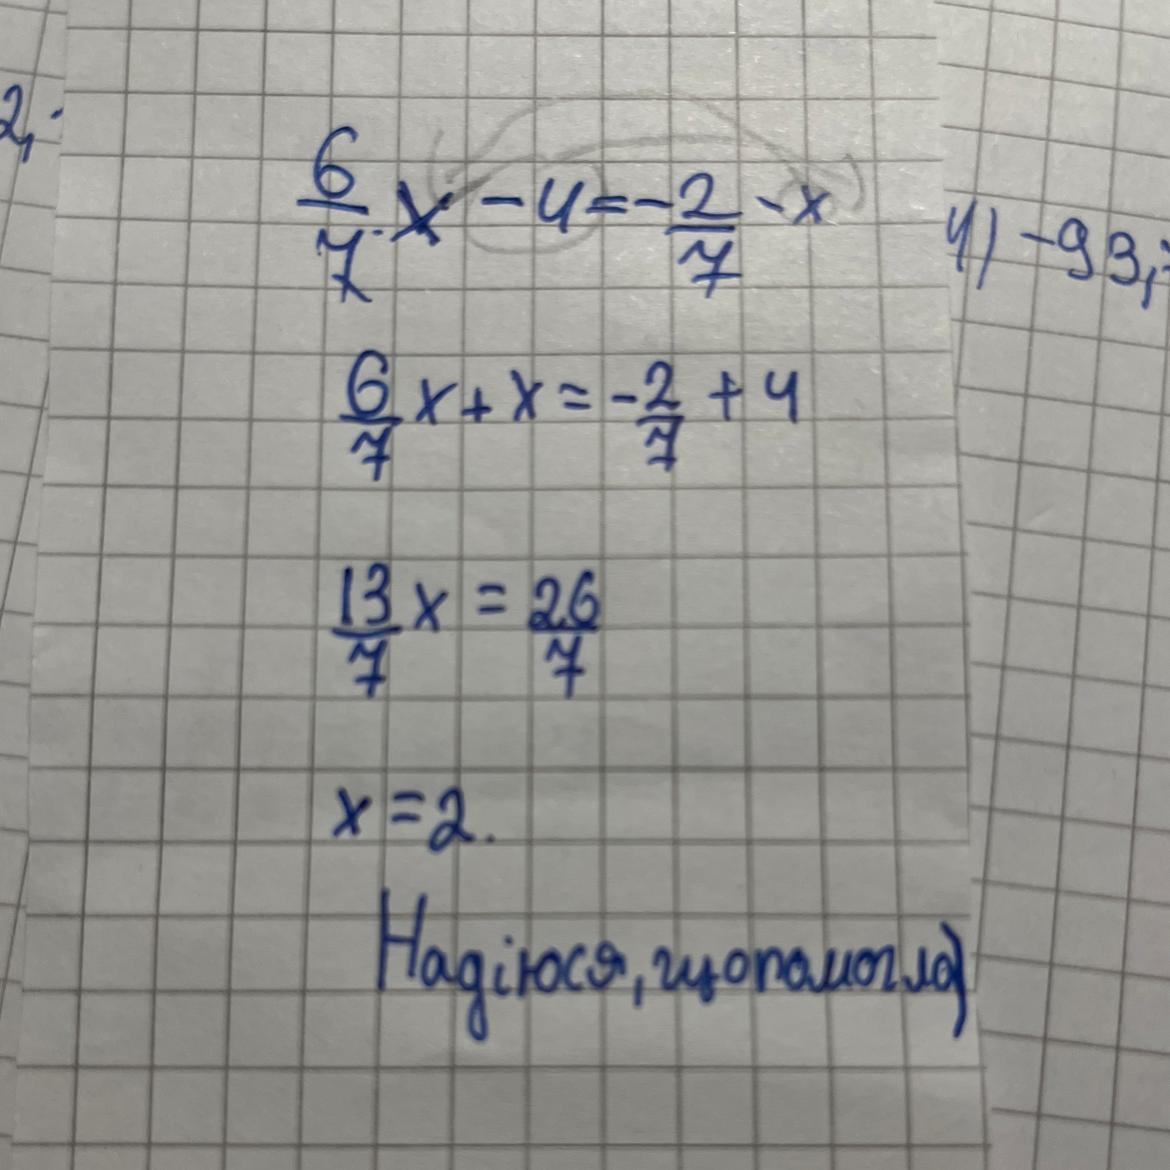 2,
6/7 · x - 4 = - 2/7 - x
4) -93,
6/7 x + x = - 2/7 + 4
13/7 x = 26/7
x = 2.
Надіюся, що помогла)